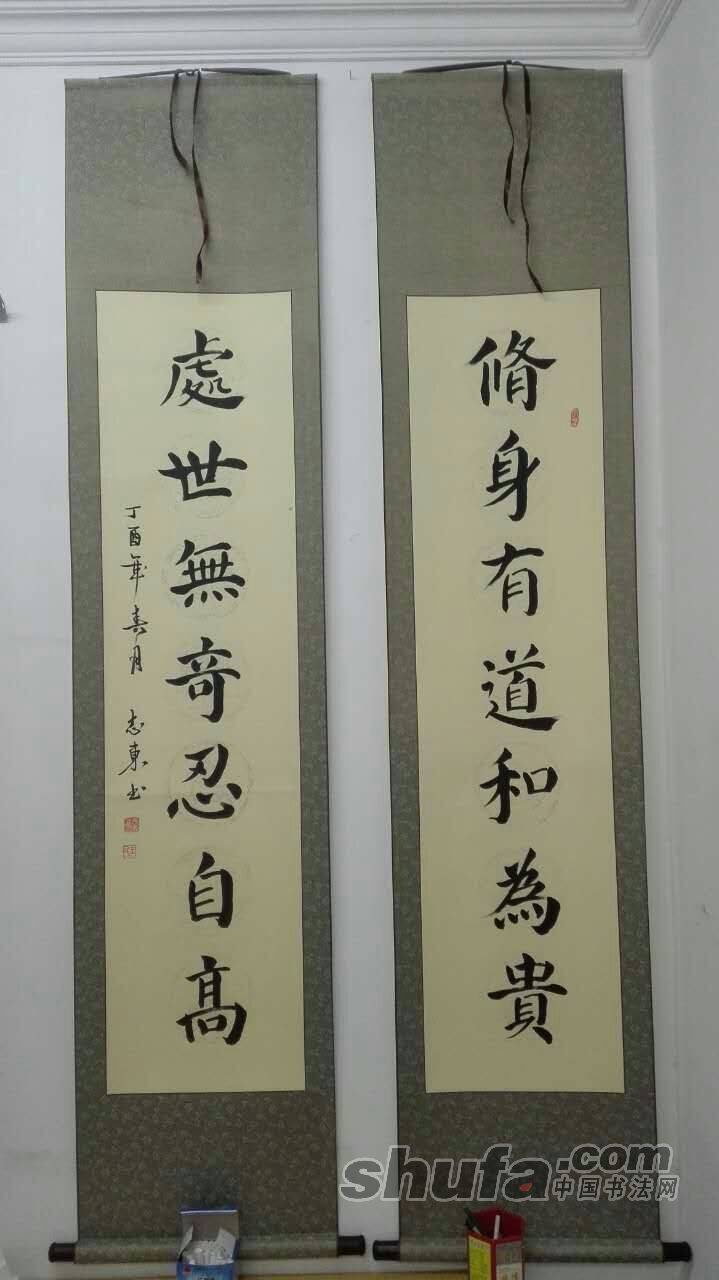 脩身有道和為貴
處世無奇忍自高
丁酉年春月
志東书
shufa.com
中国书法网